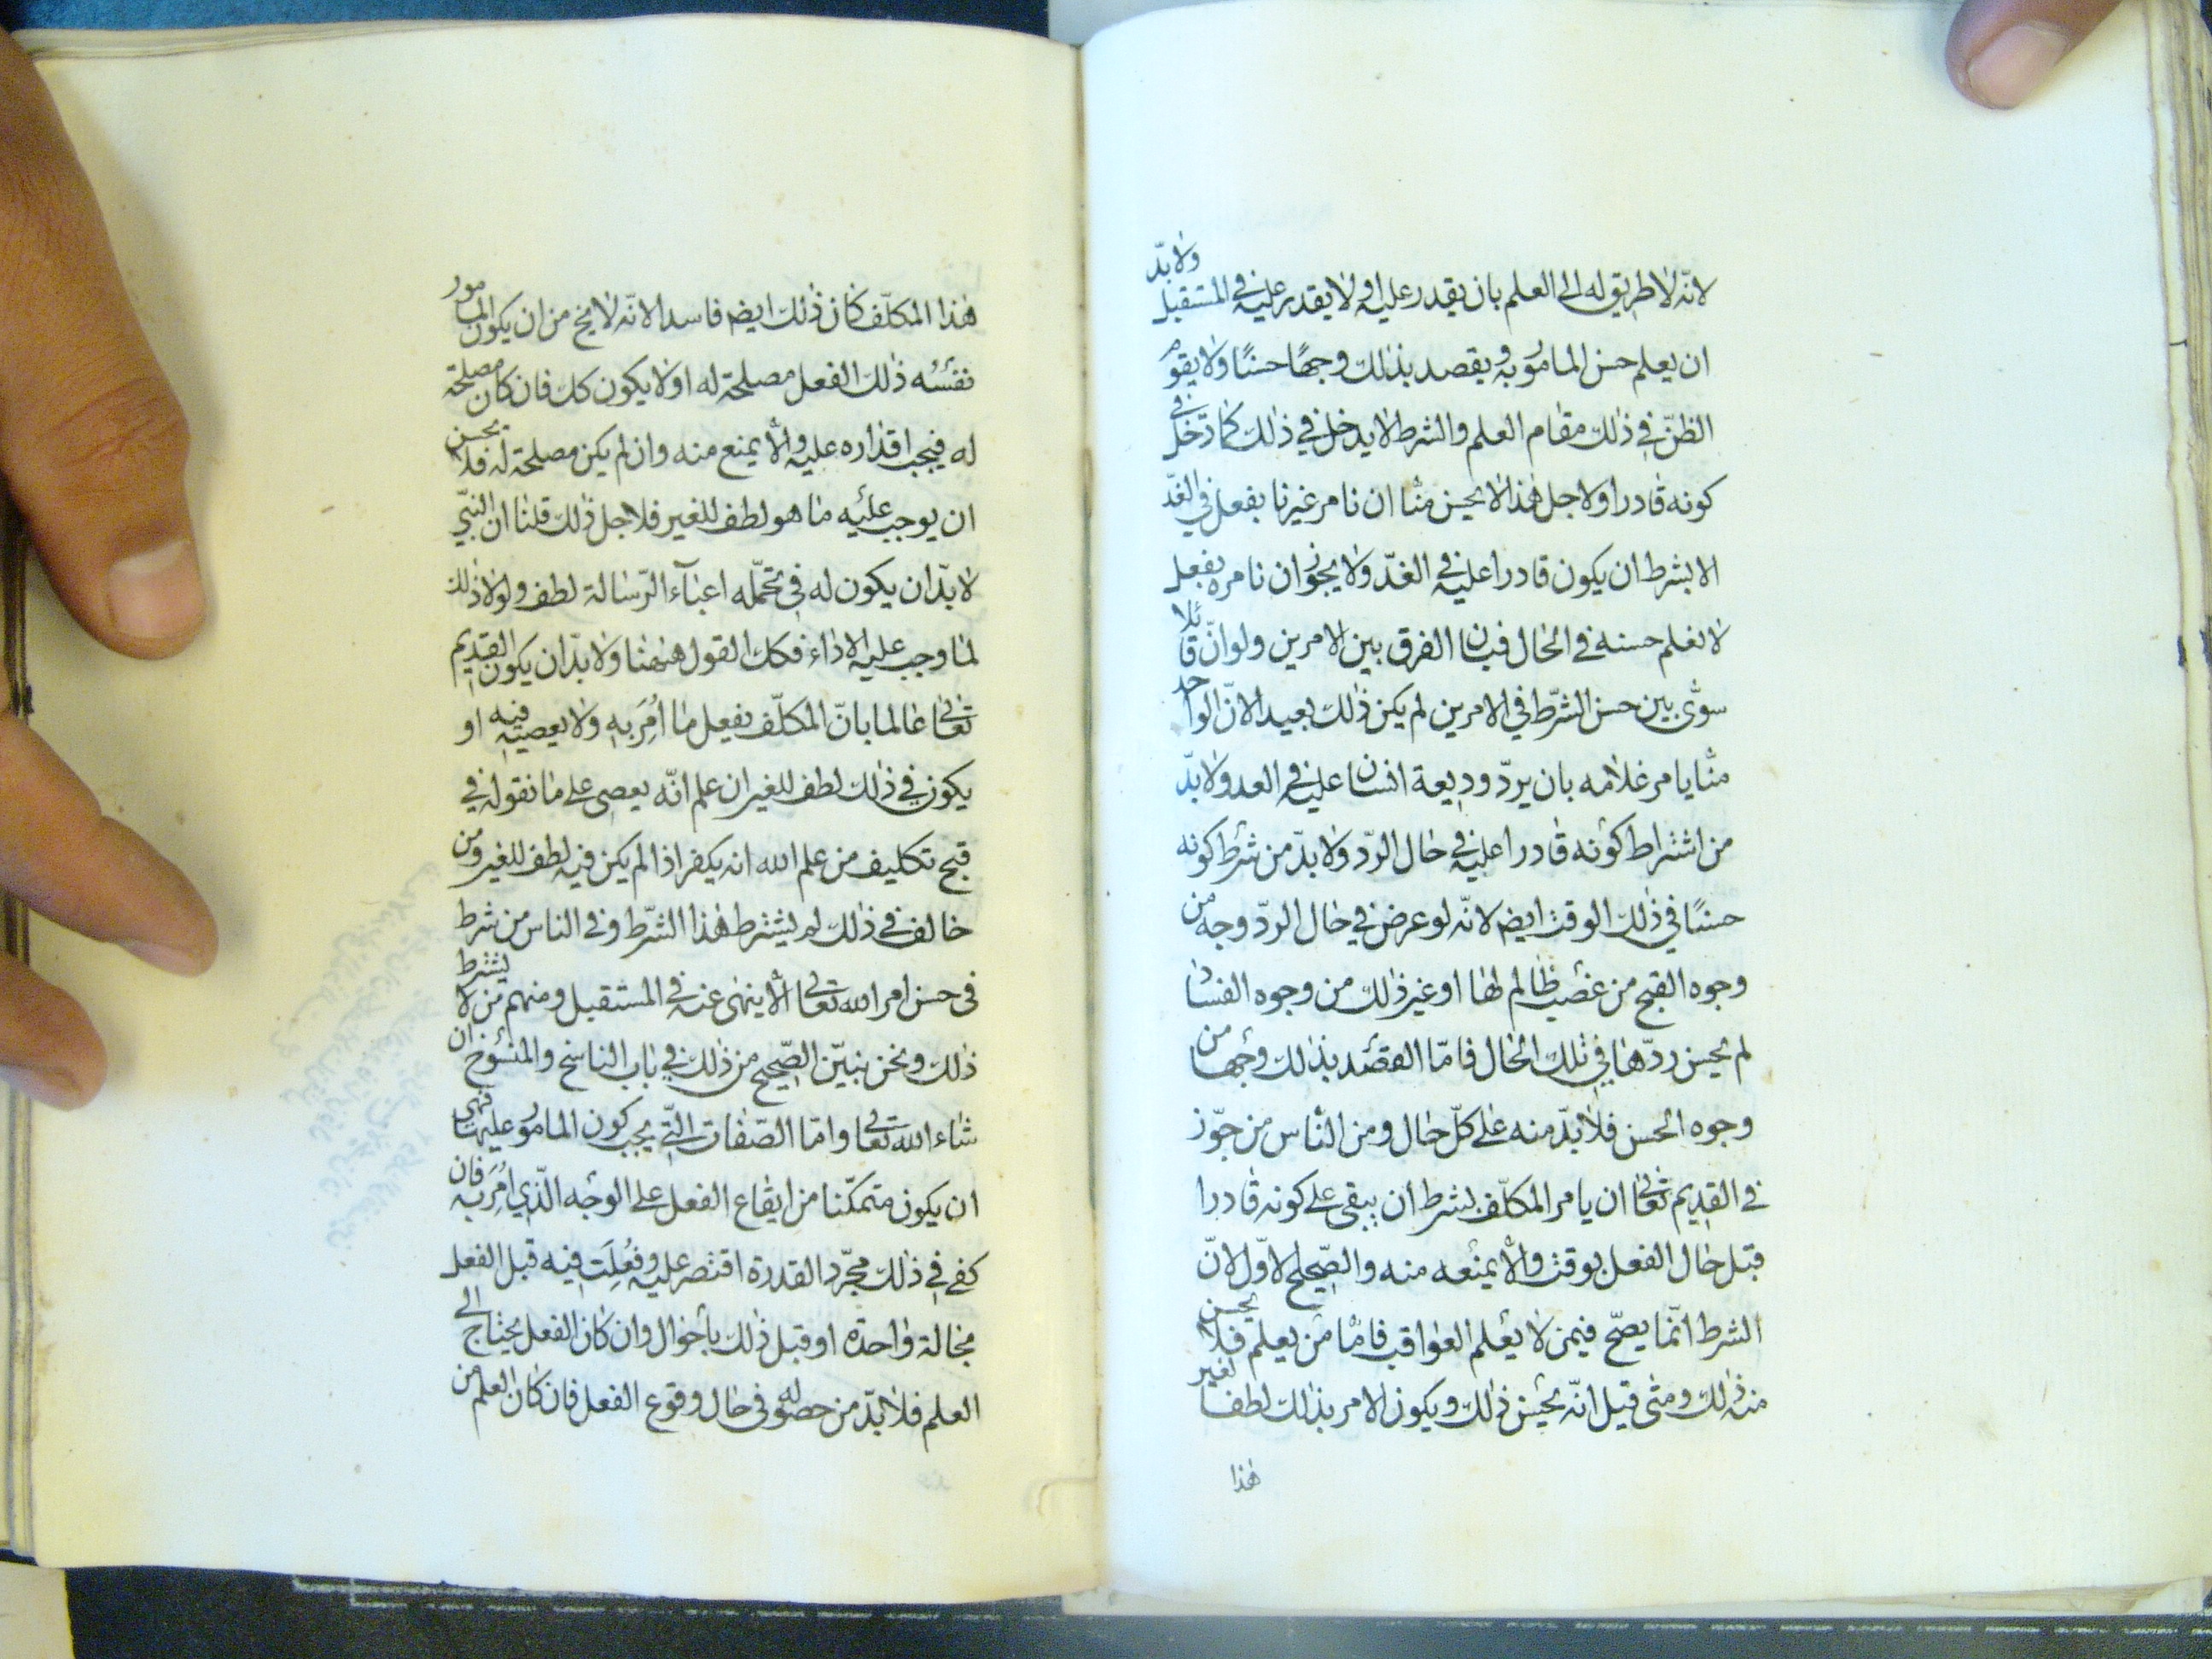 لانّه لا طريق له الى العلم بان يقدر عليه او لا يقدر عليه في المستقبل ولا بدّ
ان يعلم حسن المامور به ويقصد بذلك وجهًا حسنًا ولا يقوم
الظنّ في ذلك مقام العلم والشرط لا يدخل في ذلك كما تدخل في
كونه قادرا ولاجل هذا لا يحسن منّا ان نامر غيرنا بفعل في الغد
الا بشرط ان يكون قادرا عليه في الغدّ ولا يجوز ان نامره بفعل
لا نعلم حسنه في الحال فبان الفرق بين الامرين ولو انّ قائلا
سوّى بين حسن الشرّط في الامرين لم يكن ذلك بعيدا لانّ الواحد
منّا يامر غلامه بان يردّ وديعة انسان عليه في الغد ولا بدّ
من اشتراط كونه قادرا عليه في حال الردّ ولا بدّ من شرط كونه
حسنًا في ذلك الوقت ايض لانّه لو عرض في حال الردّ وجه من
وجوه القبح من غصب ظالم لها او غير ذلك من وجوه الفساد
لم يحسن ردّها في تلك الحال فامّا القصد بذلك وجها من
وجوه الحسن فلا بدّ منه على كلّ حال ومن الناس من جوّز
في القديم تعالى ان يامر المكلّف بشرط ان يبقى على كونه قادرا
قبل حال الفعل بوقت والّا يمنعه منه والصّحيح الاوّل لانّ
الشرط انّما يصحّ فيمن لا يعلم العواقب فامّا من يعلم فلا يحسن
منه ذلك ومتى قيل انّه يحسن ذلك ويكون الامر بذلك لطفا لغير
هذا
هذا المكلّف كان ذلك ايض فاسدا لانّه لا يخ من ان يكون المامور
نفسه ذلك الفعل مصلحة له او لا يكون كك فان كان مصلحة
له فيجب اقداره عليه والّا يمنع منه وان لم يكن مصلحة له فلا يحسن
ان يوجب عليه ما هو لطف للغير فلاجل ذلك قلنا ان النبيّ
لا بدّ ان يكون له في تحمّله اعباء الرّسالة لطف ولولا ذلك
لما وجب عليه الاداء فكك القول ههنا ولا بدّ ان يكون القديم
تعالى عالما بانّ المكلّف يفعل ما اُمِرَ به ولا يعصيه فيه او
يكون في ذلك لطف للغير ان علم انّه يعصى على ما نقوله في
قبح تكليف من علم الله انه يكفر اذا لم يكن فيه لطف للغير ومن
خالف في ذلك لم يشترط هذا الشّرط وفي الناس من شرط
في حسن امر الله تعالى الّا ينهى عنه في المستقبل ومنهم من لا يشترط
ذلك ونحن نبيّن الصّحيح من ذلك في باب الناسخ والمنسوخ ان
شاء الله تعالى وامّا الصّفات الّتي يجب كون المامور عليها فهي
ان يكون متمكّنا من ايقاع الفعل على الوجه الّذي اُمِرَ به فان
كفى في ذلك مجّرد القدرة اقتصر عليه وفُعِلَت فيه قبل الفعل
بحالة واحدة او قبل ذلك باحوال وان كان الفعل يحتاج الى
العلم فلا بدّ من حصوله في حال وقوع الفعل فان كان العلم من